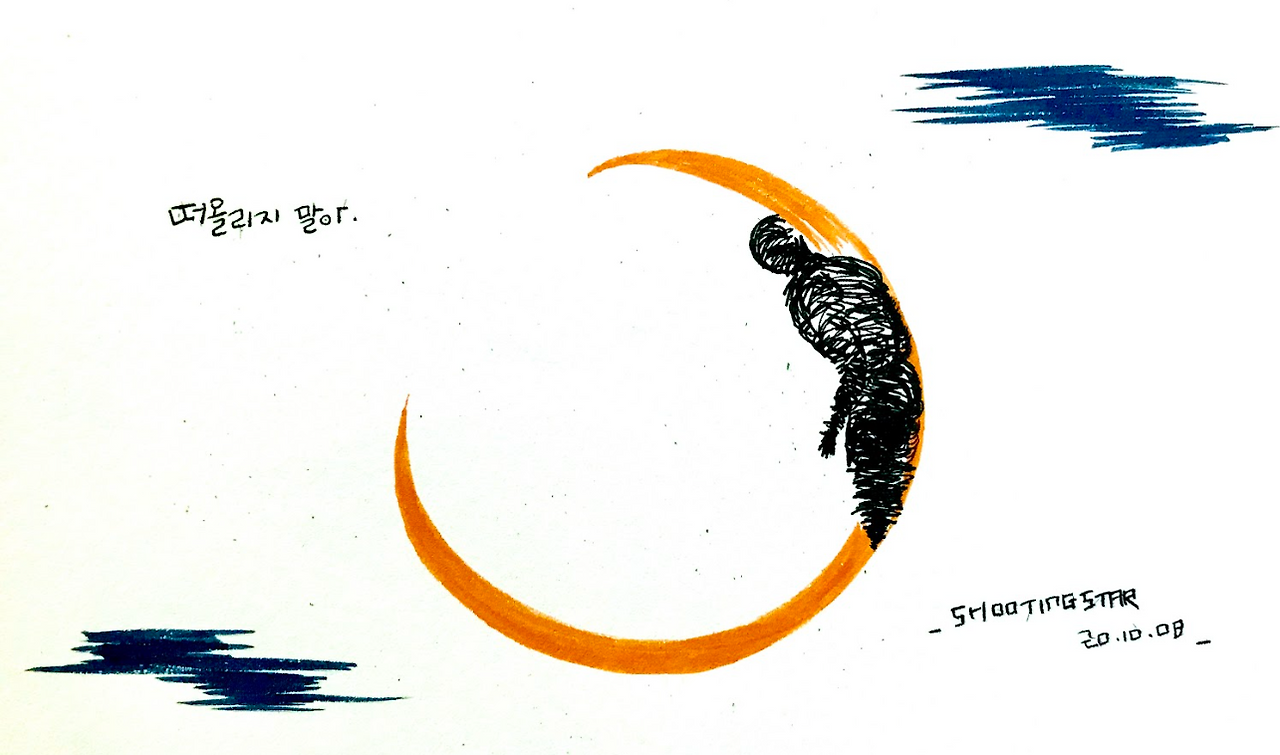 떠올리지 말아.
_ SHOOTINGSTAR
20.10.08 _